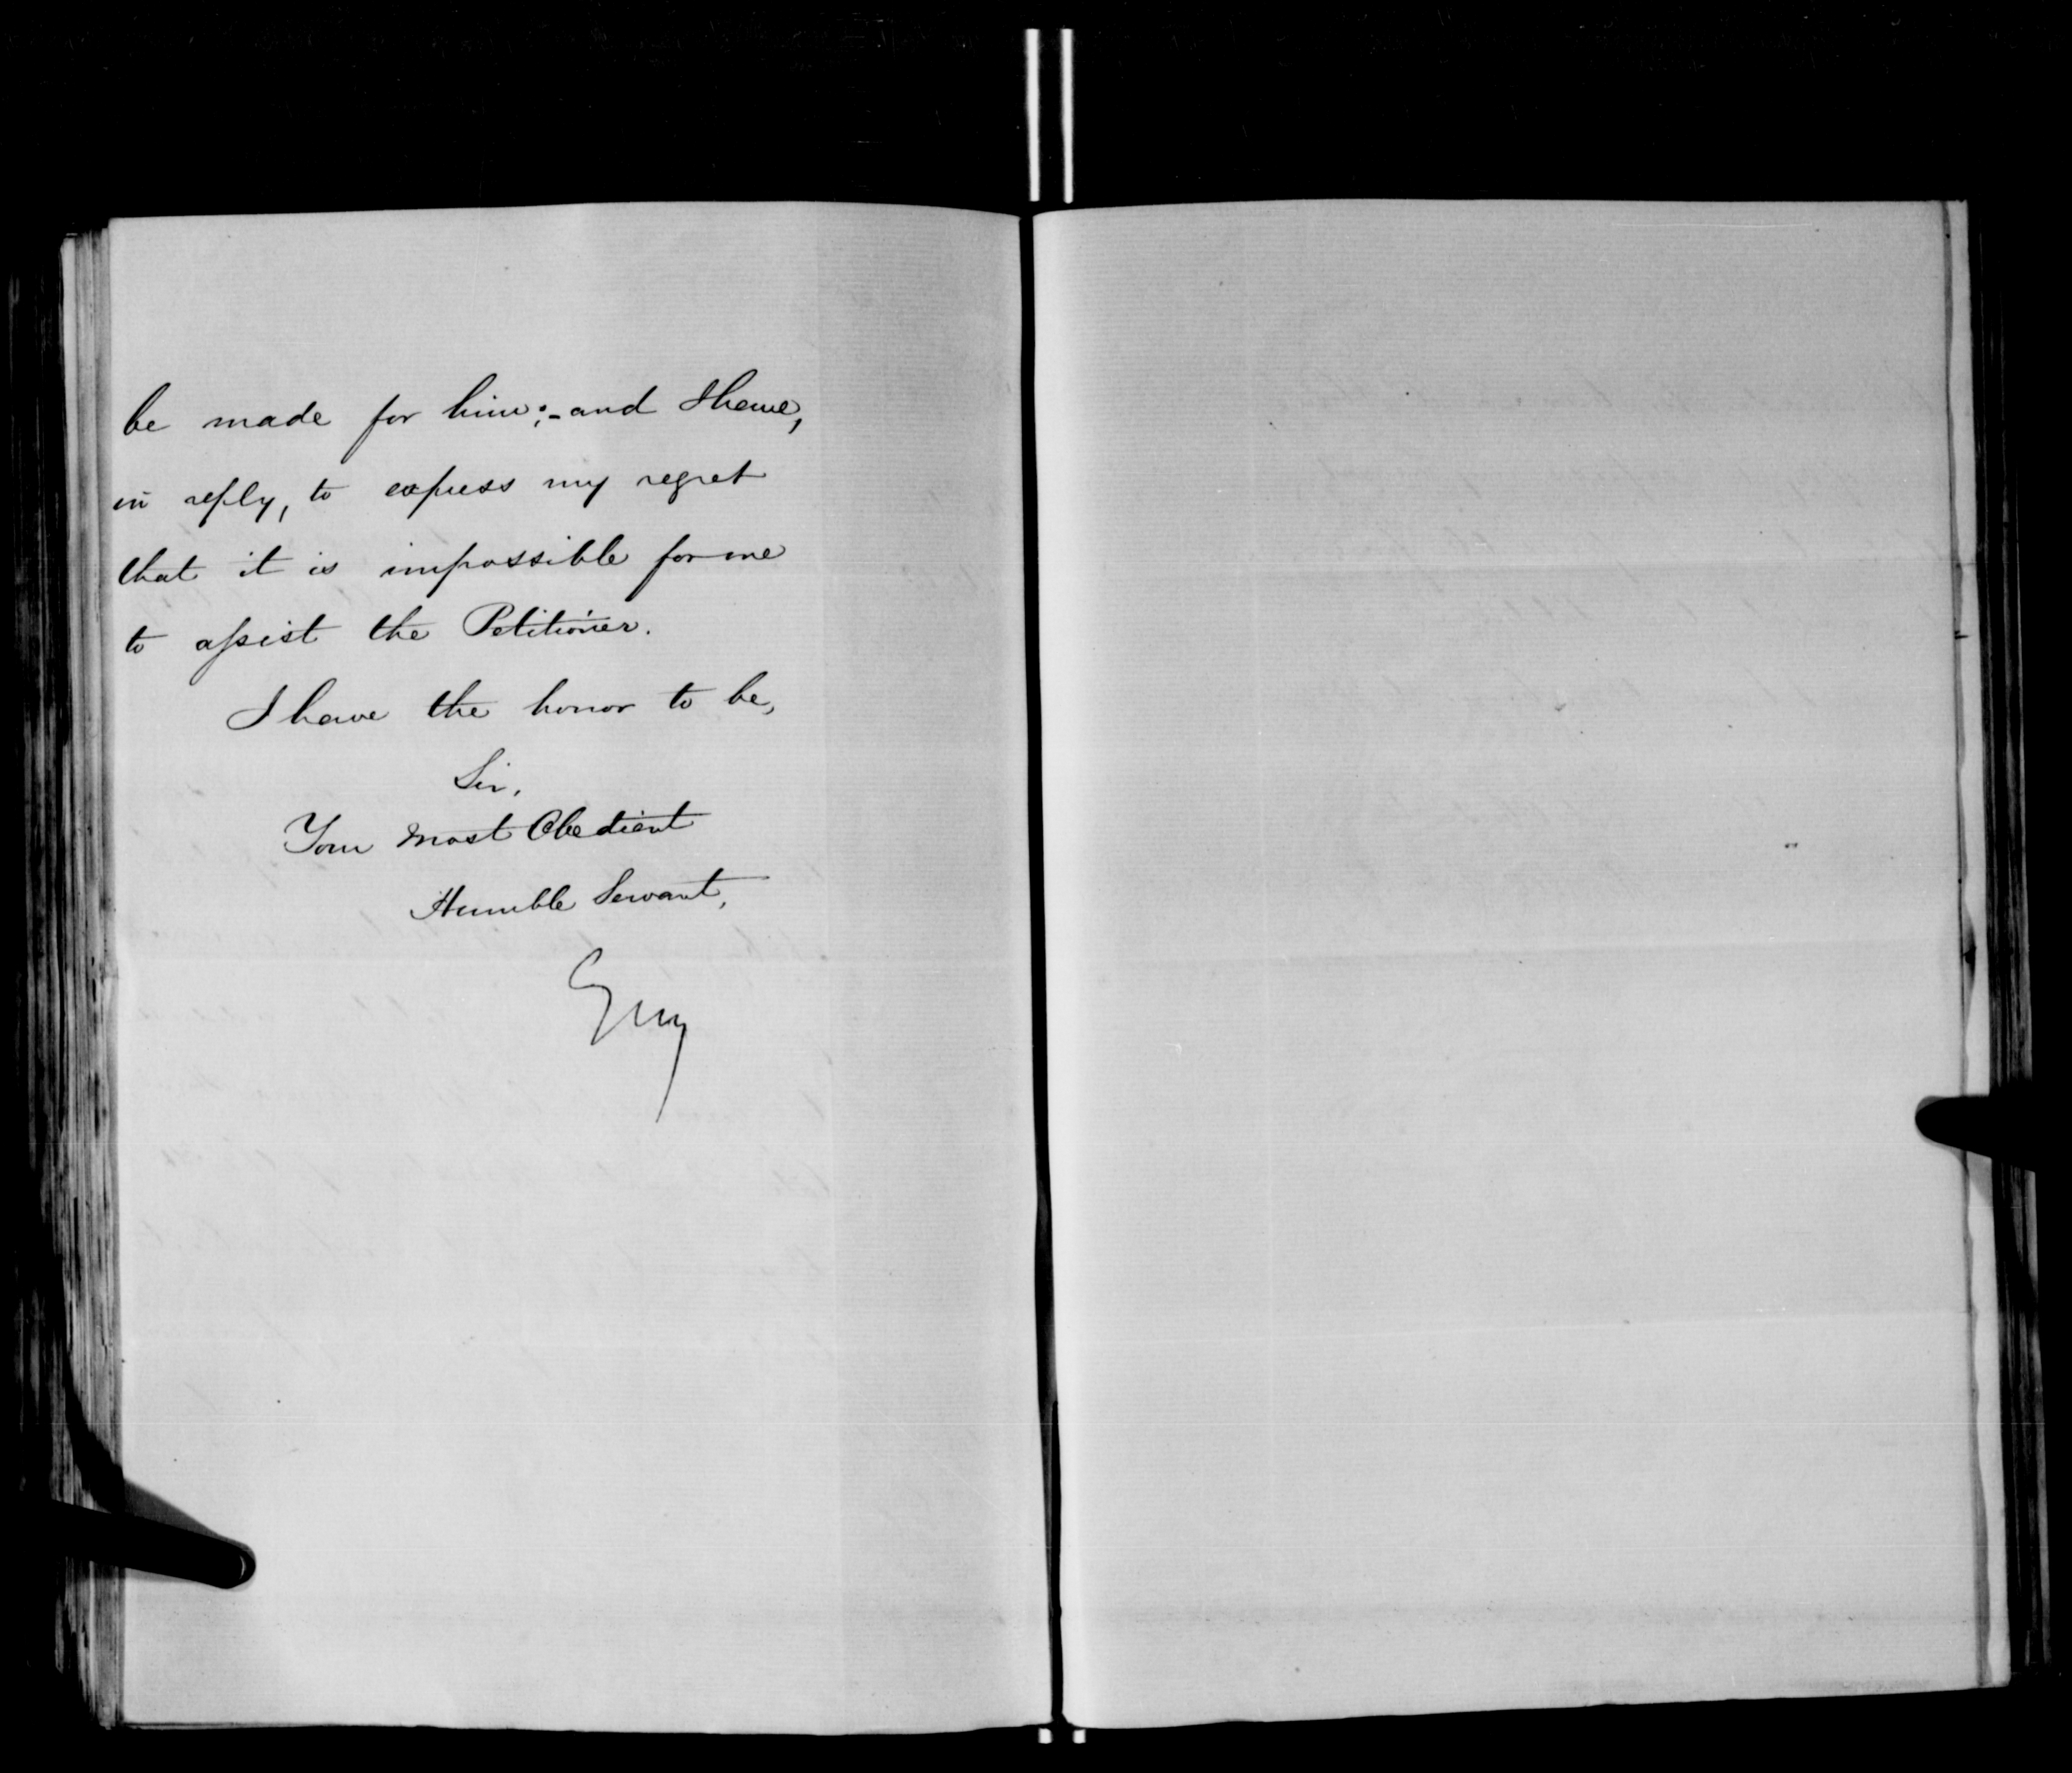 be made for him:- and I have,
in reply, to express my regret
that it is impossible for me
to assist the Petitioner.
I have the honor to be,
Sir,
Your most Obedient
Humble Servant,
Grey